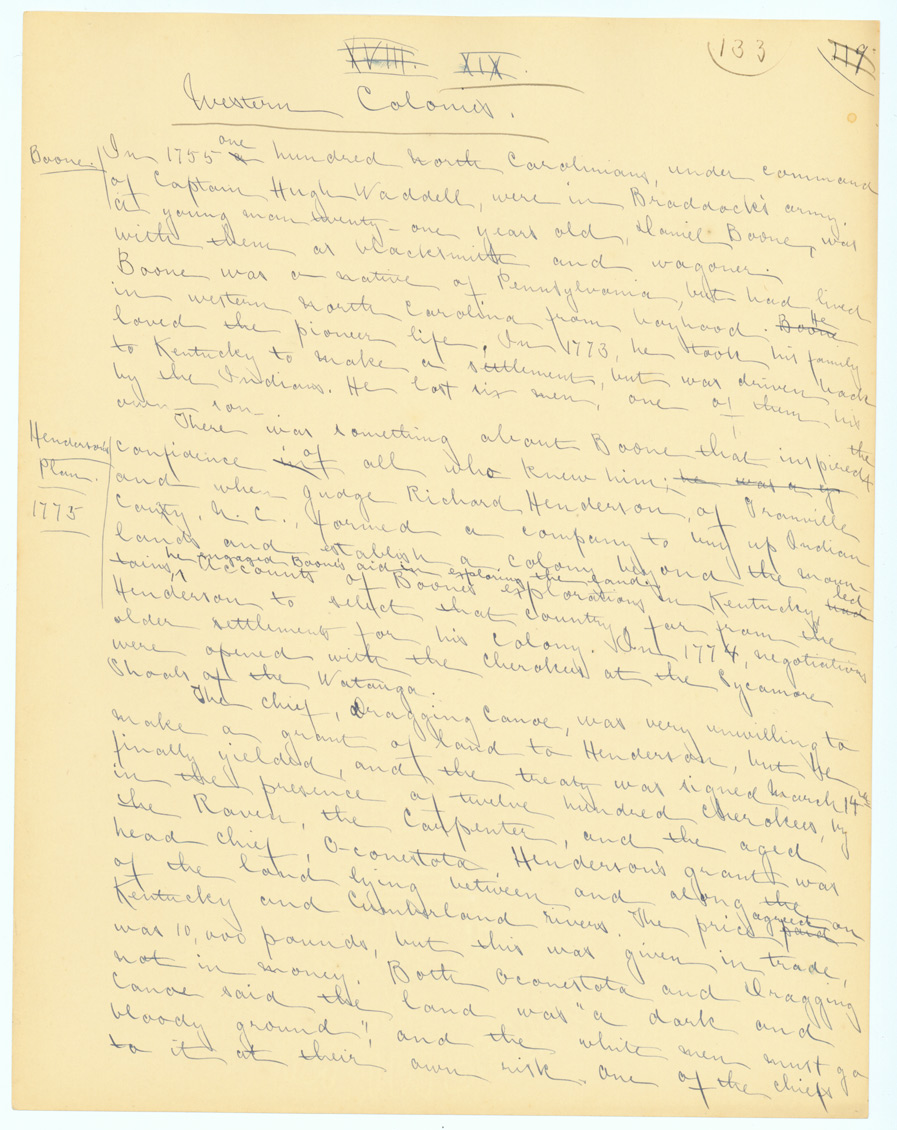 XVIII. XIX.
133 119
Western Colonies.
Boone. In 1755 one a hundred North Carolinians, under command
of Captain Hugh Waddell, were in Braddock's army.
A young man twenty-one years old, Daniel Boone, was
with them as blacksmith and wagoner.
Boone was a native of Pennsylvania, but had lived
in western North Carolina from boyhood. Boone He
loved the pioneer life. In 1773, he took his family
to Kentucky to make a settlement, but was driven back
by the Indians. He lost six men, one of them his
own son.
There was something about Boone that inspired the
Henderson's Plan. 1775
confidence in of all who knew him; he was a
and when Judge Richard Henderson, of Granville
County, N.C., formed a company to buy up Indian
lands and establish a colony beyond the moun-
tains, he engaged Boone's aid in exploring the land.
Accounts of Boone's explorations in Kentucky led had
Henderson to select that country, far from the
older settlements for his colony. In 1774, negotiations
were opened with the Cherokees at the Sycamore
Shoals of the Watauga.
The chief, Dragging Canoe, was very unwilling to
make a grant of land to Henderson, but he
finally yielded, and the treaty was signed March 14th
in the presence of twelve hundred Cherokees, by
the Raven, the Carpenter, and the aged
head chief, O-conestota. Henderson's grant was
of the land lying between and along the
Kentucky and Cumberland rivers. The price agreed on paid
was 10,000 pounds, but this was given in trade,
not in money. Both Oconestota and Dragging
Canoe said the land was "a dark and
bloody ground", and the white men must go
to it at their own risk. One of the chiefs